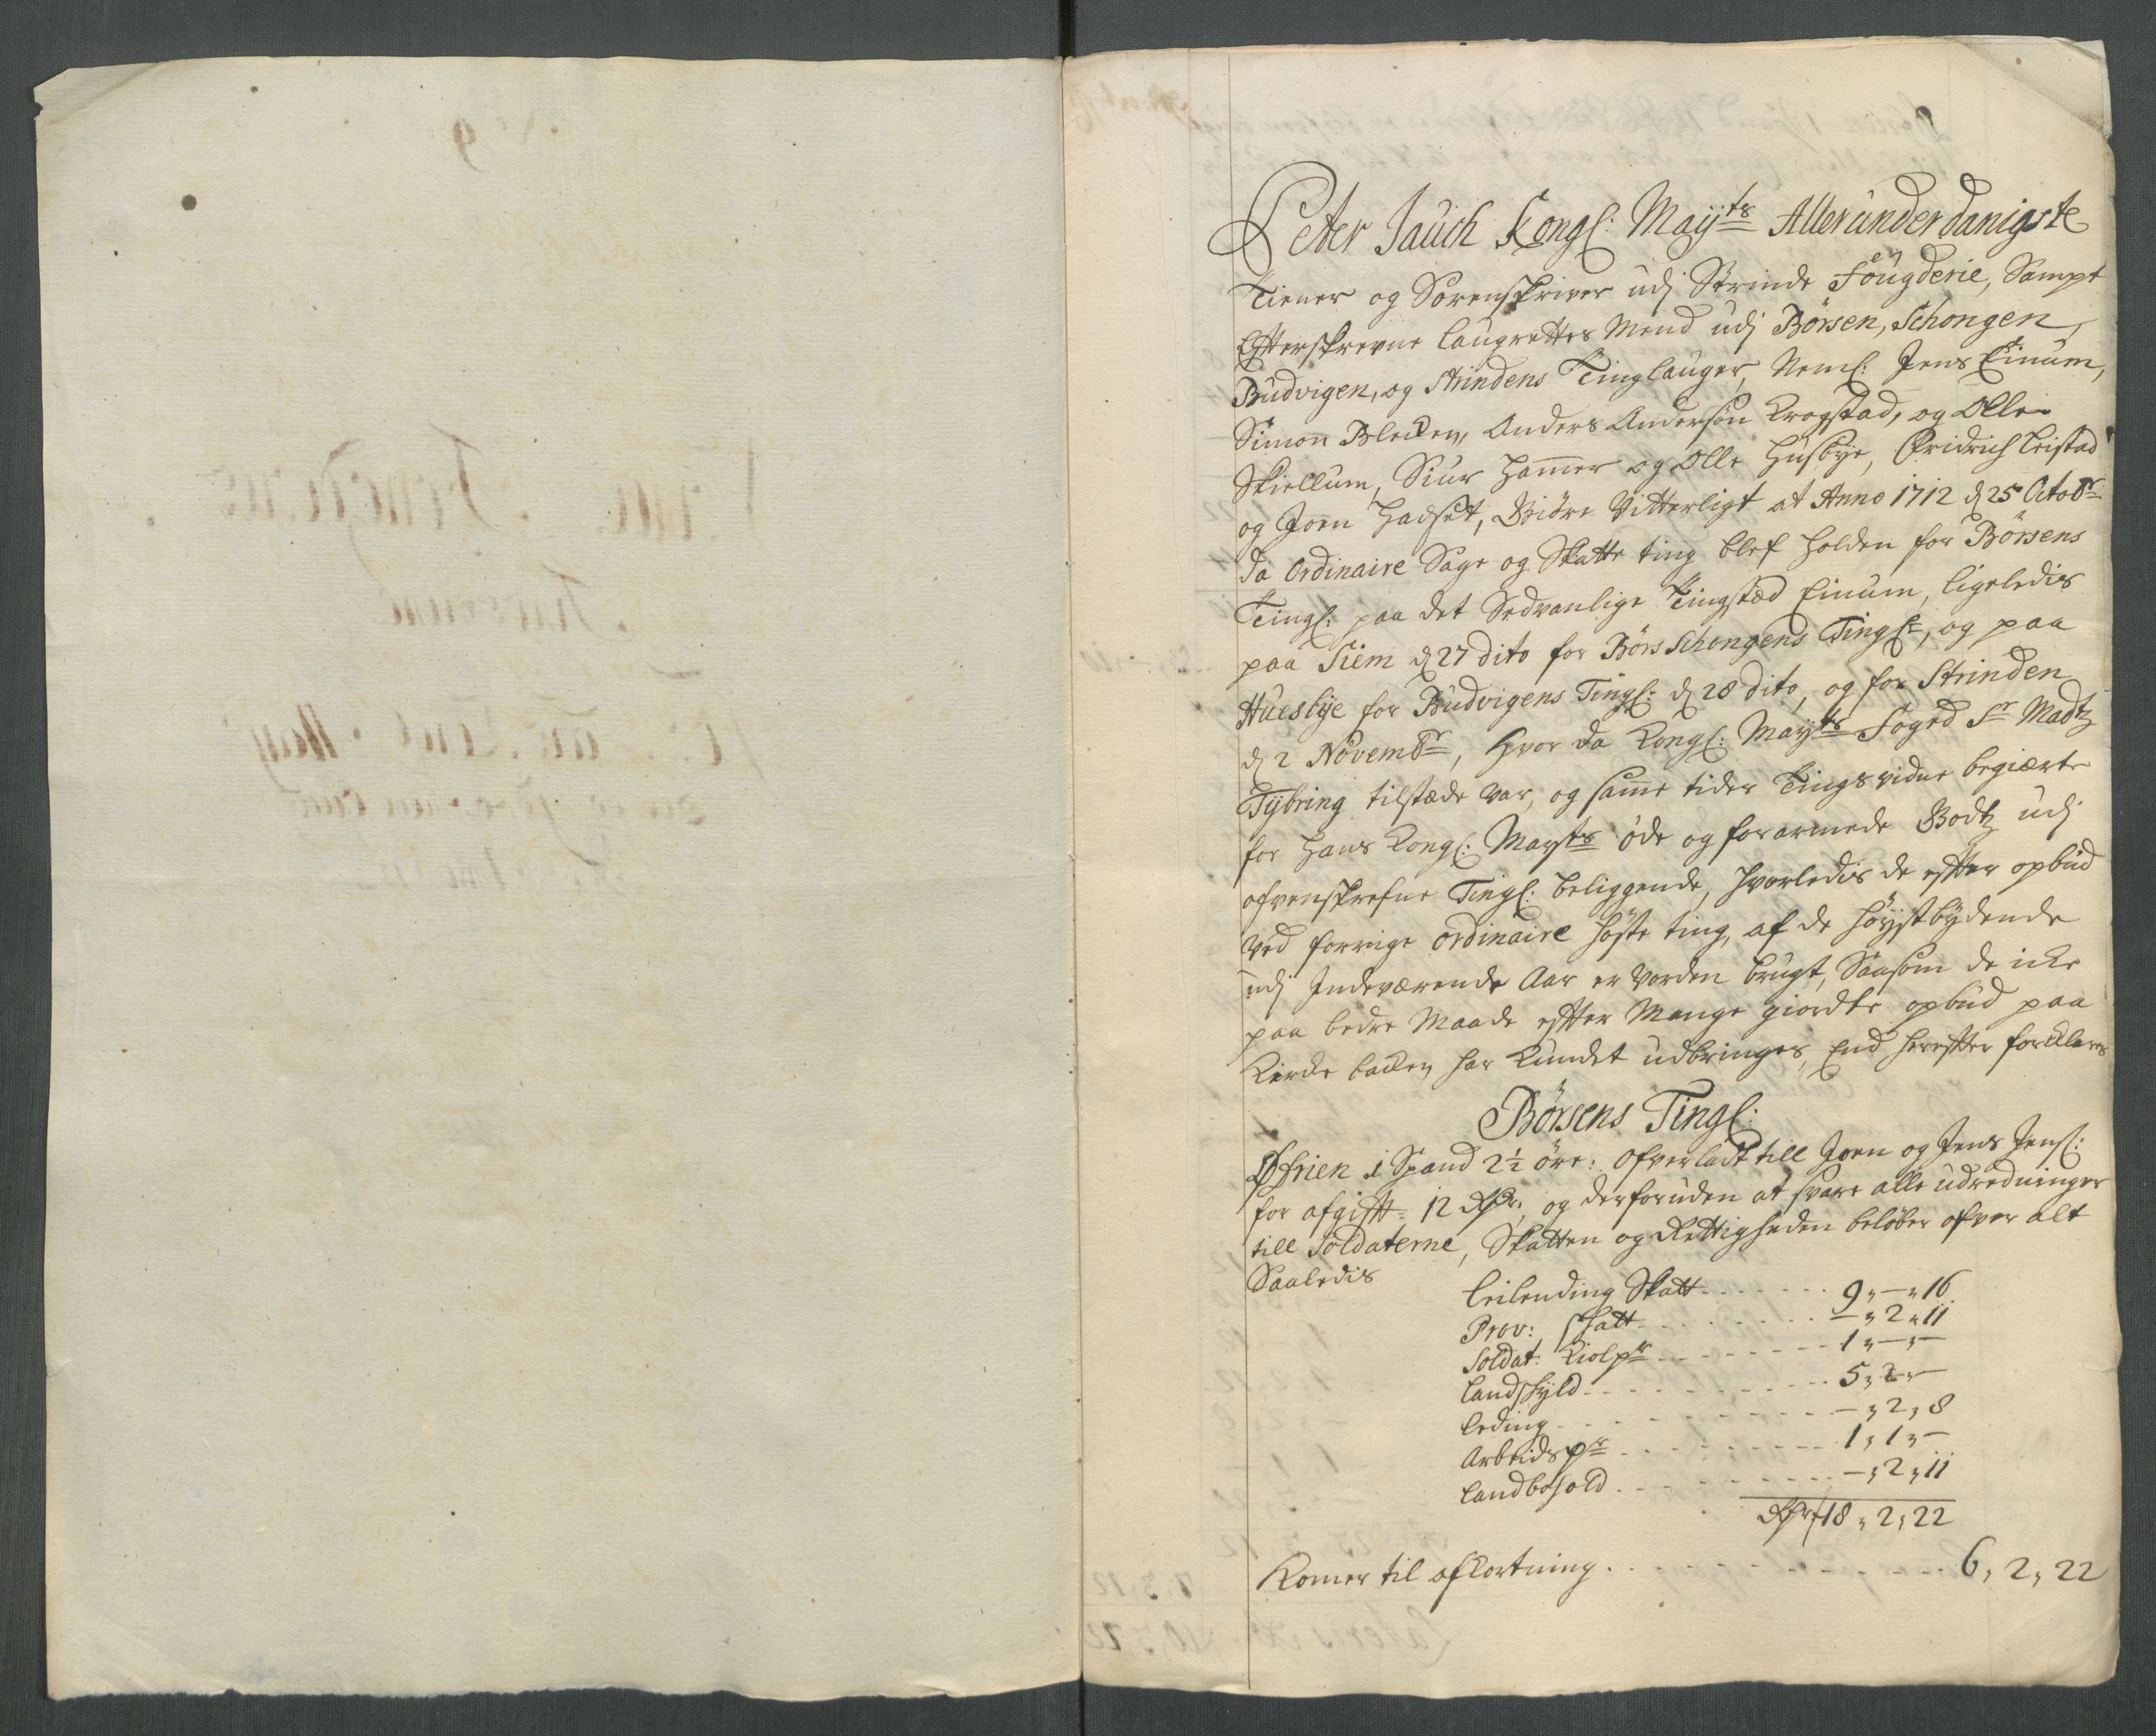 Peter Jauch Kongl: Mayts Allerunderdanigste
Tiener og Sorenskriver udj Strinde Fougderie, Sampt
Efterskrevne Laugrettes Mend udj Börsen, Schongen,
Budvigen, og Strindens Tinglauger, Neml: Jens Einum,
Simon Bleken, Anders Andersön Krogstad, og Olle
Skiellum, Siur Hammer og Olle Husbye, Fridrich Leistad
og Joen Hadset, Giöre Vitterligt at Anno 1712 d 25 Octobr
da Ordinaire Sage og Skatte ting blef holden for Börsens
Tingl: paa det Sedvanlige Tingstæd Einum, ligeledis
paa Siem d 27 dito for Börs Schongens Tingl:, og paa
Huesbye for Budvigens Tingl: d 28 dito, og for Strinden
d 2 Novembr, hvor da Kongl: Mayts Foged Sr Madtz
Tybring tilstæde var, og samme tider Tingsvidne begiærte
for Hans Kongl: Mayts öde og forarmede Godtz udj
ofvenskrefne Tingl: beliggende, hvorledis de effter opbud
ved forrige ordinaire höste ting, af de höystbydende
udj Indeværende Aar er vorden brugt, Saasom de icke
paa bedre Maade effter Mange giordte opbud paa
Kircke backen har kundet udbringes, End hereffter forklares
Börsens Tingl:
Öfrien 1 Spand 2½ öre: Ofverladt till Joen og Jens Jens:
for afgifft 12 Rdr:, og derforuden at svare alle udredninger
till Soldaterne, Skatten og Rettigheden belöber ofver alt
Saaledis
Leilending Skatt - - - - - - - 9 „ — „ 16
Prov: skatt - - - - - - - — „ 2 „ 11
Soldat: Kiolpr - - - - - - - 1 „ — „ —
Landskyld - - - - - - - 5 „ 2 „ —
Leding - - - - - - - — „ 2 „ 8
Arbeidspr - - - - - - - 1 „ 1 „ —
Landbohold - - - - - - - — „ 2 „ 11
Rdr 18 „ 2 „ 22
Komer til afkortning - - - - - - - 6 „ 2 „ 22